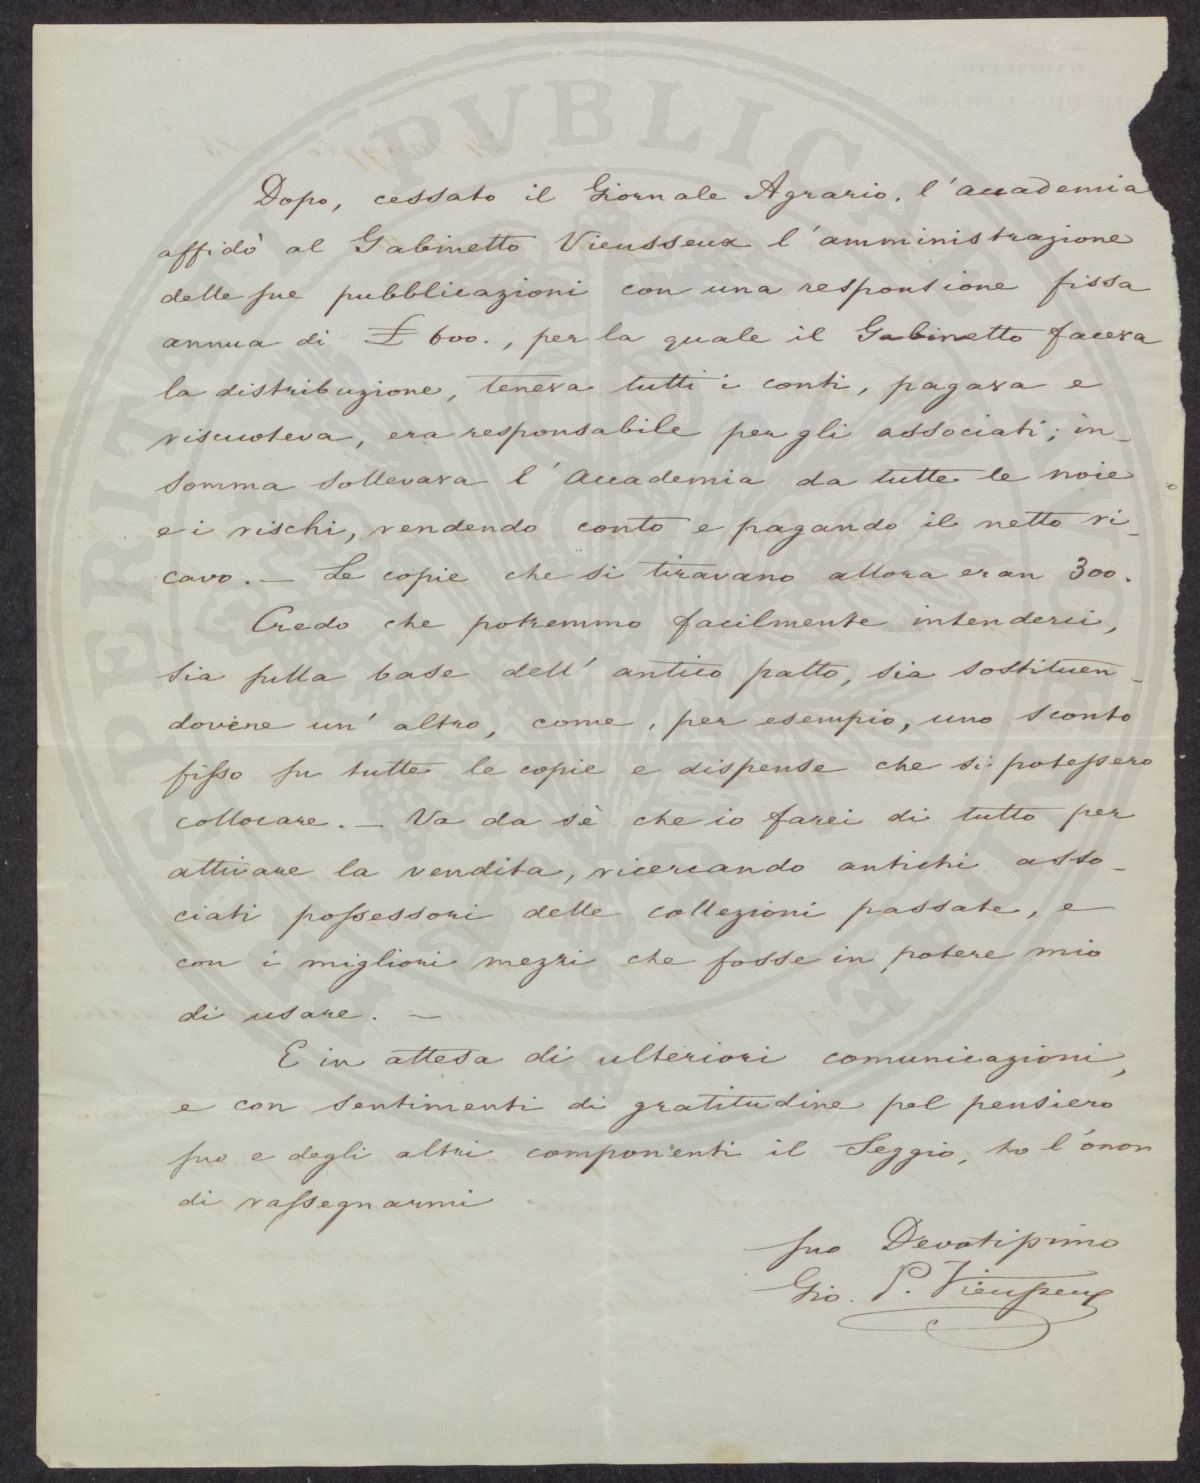 PROSPERITATI PVBLICAE AVGENDAE
Dopo, cessato il Giornale Agrario, l'accademia
affidò al Gabinetto Vieusseux l'amministrazione
delle sue pubblicazioni con una responsione fissa
annua di £ 600., per la quale il Gabinetto faceva
la distribuzione, teneva tutti i conti, pagava e
riscuoteva, era responsabile per gli associati; in-
somma sollevava l'Accademia da tutte le noie
e i rischi, rendendo conto e pagando il netto ri-
cavo. — Le copie che si tiravano allora eran 300.
Credo che potremmo facilmente intenderci,
sia sulla base dell'antico patto, sia sostituen-
dovene un'altro, come, per esempio, uno sconto
fisso su tutte le copie e dispense che si potessero
collocare. — Va da sè che io farei di tutto per
attivare la vendita, ricercando antichi asso-
ciati possessori delle collezioni passate, e
con i migliori mezzi che fosse in potere mio
di usare. —
E in attesa di ulteriori comunicazioni,
e con sentimenti di gratitudine pel pensiero
suo e degli altri componenti il Seggio, ho l'onor
di rassegnarmi
suo Devotissimo
Gio. P. Vieusseux